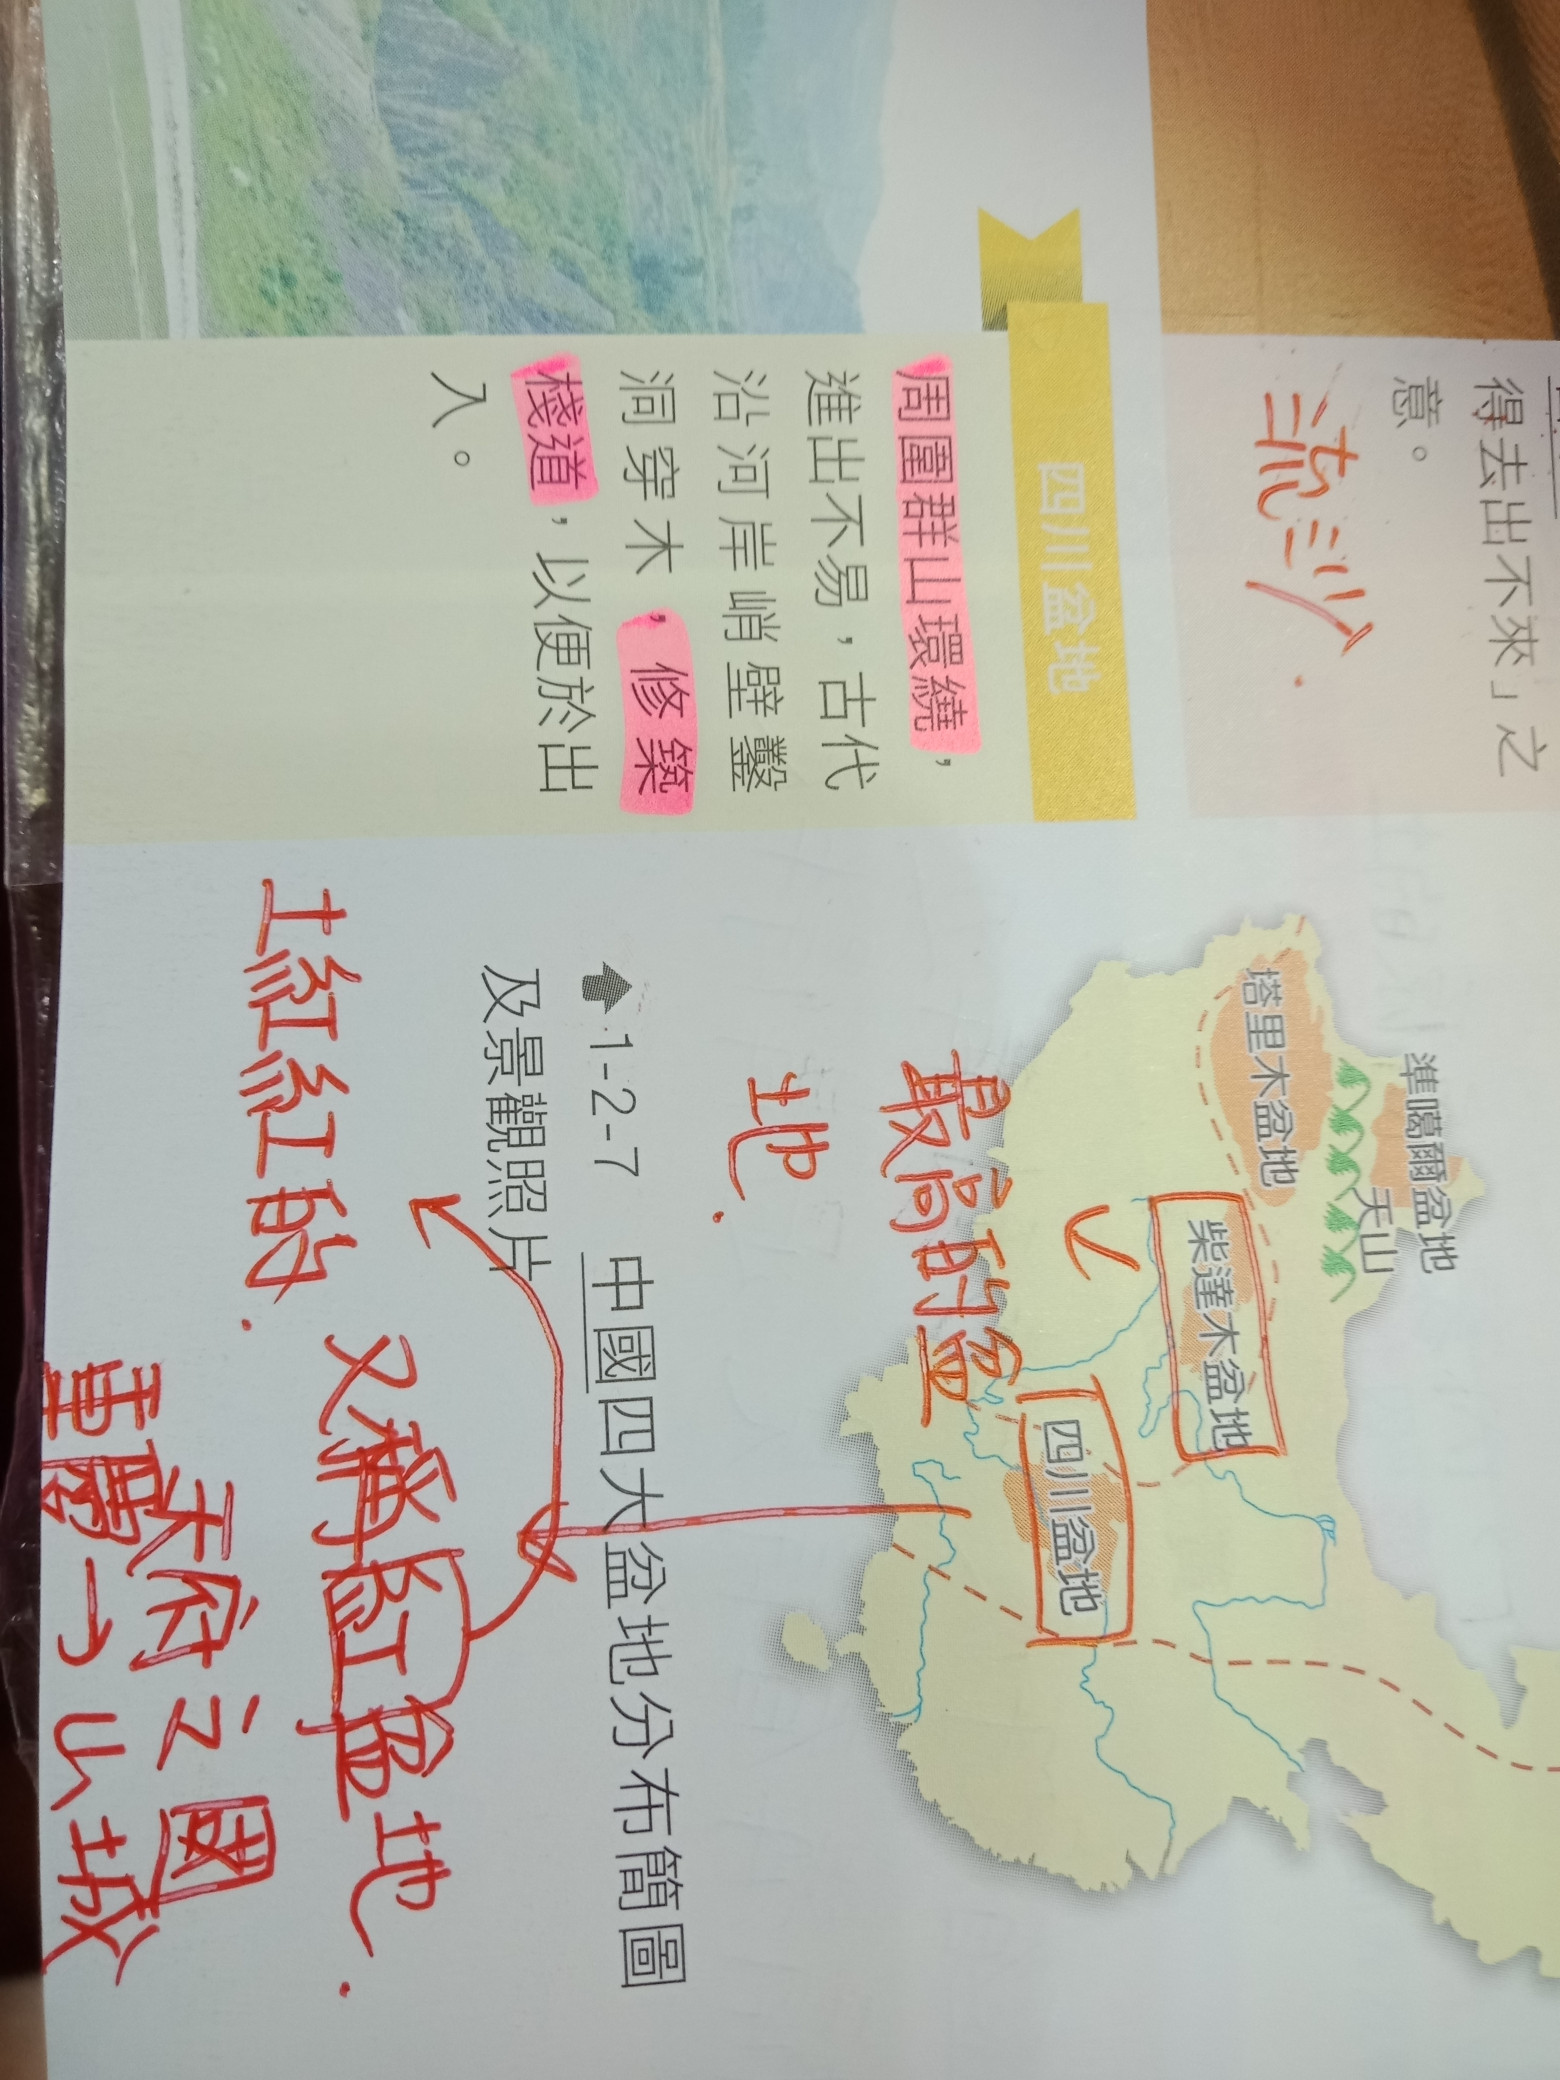 得去出不來」之
意。
流沙.
四川盆地
周圍群山環繞,
進出不易,古代
沿河岸峭壁鑿
洞穿木,修築
棧道,以便於出
入。
準噶爾盆地
天山
塔里木盆地
柴達木盆地
四川盆地
最高的盆
地.
1-2-7 中國四大盆地分布簡圖
及景觀照片
土紅紅的.
又稱紅盆地.
天府之國
重慶→山城